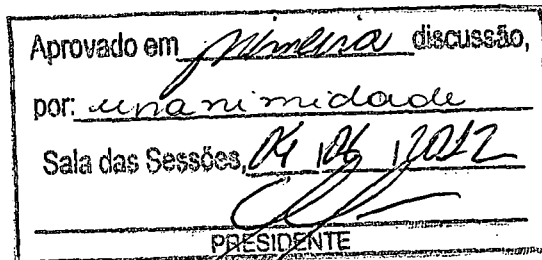 Aprovado em primeira discussão,
por: unanimidade
Sala das Sessões, 04 / 06 / 2012
PRESIDENTE